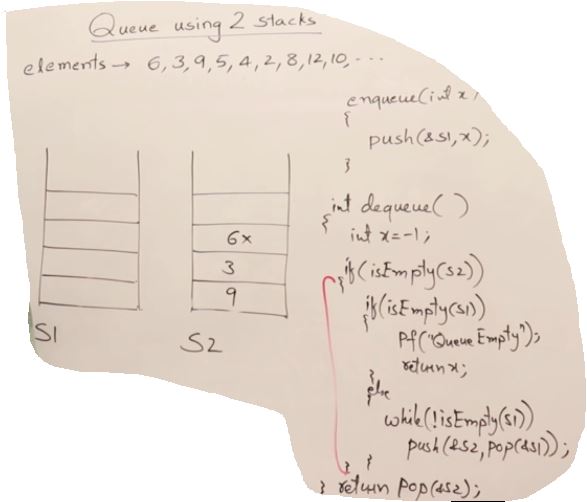 Queue using 2 stacks
elements → 6, 3, 9, 5, 4, 2, 8, 12, 10, ...
6x
3
9
S1
S2
enqueue(int x)
{
push(&S1,x);
}
int dequeue( )
{
int x=-1;
if(isEmpty(S2))
{
if(isEmpty(S1))
{
Pf("Queue Empty");
return x;
}
else
{
while(!isEmpty(S1))
push(&S2,pop(&S1));
}
}
return pop(&S2);
}